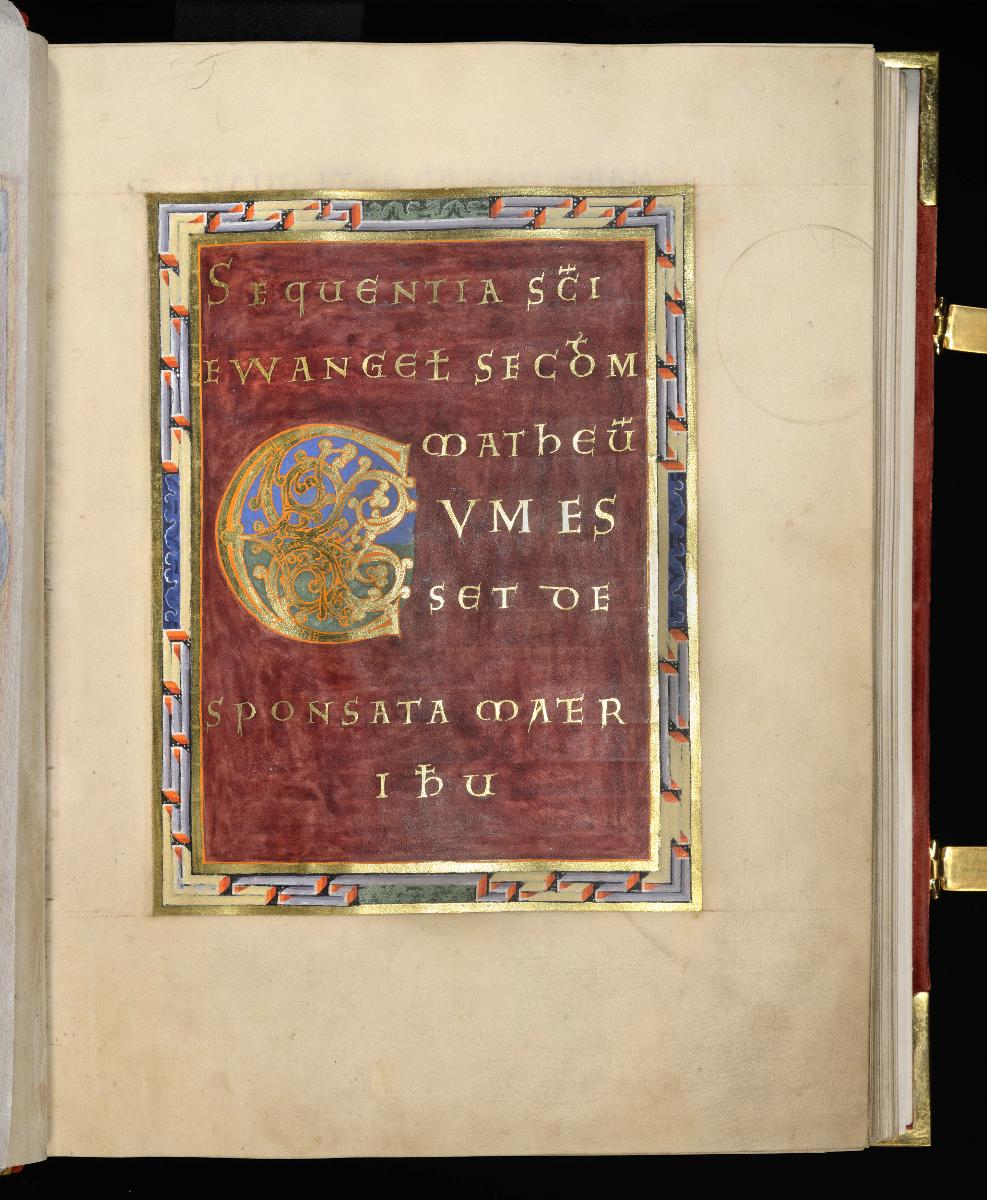 SEQUENTIA SC̄I
EWANGEŁ SECDM̄
MATHEŪ
CVM ES
SET DE
SPONSATA MATER
IħU